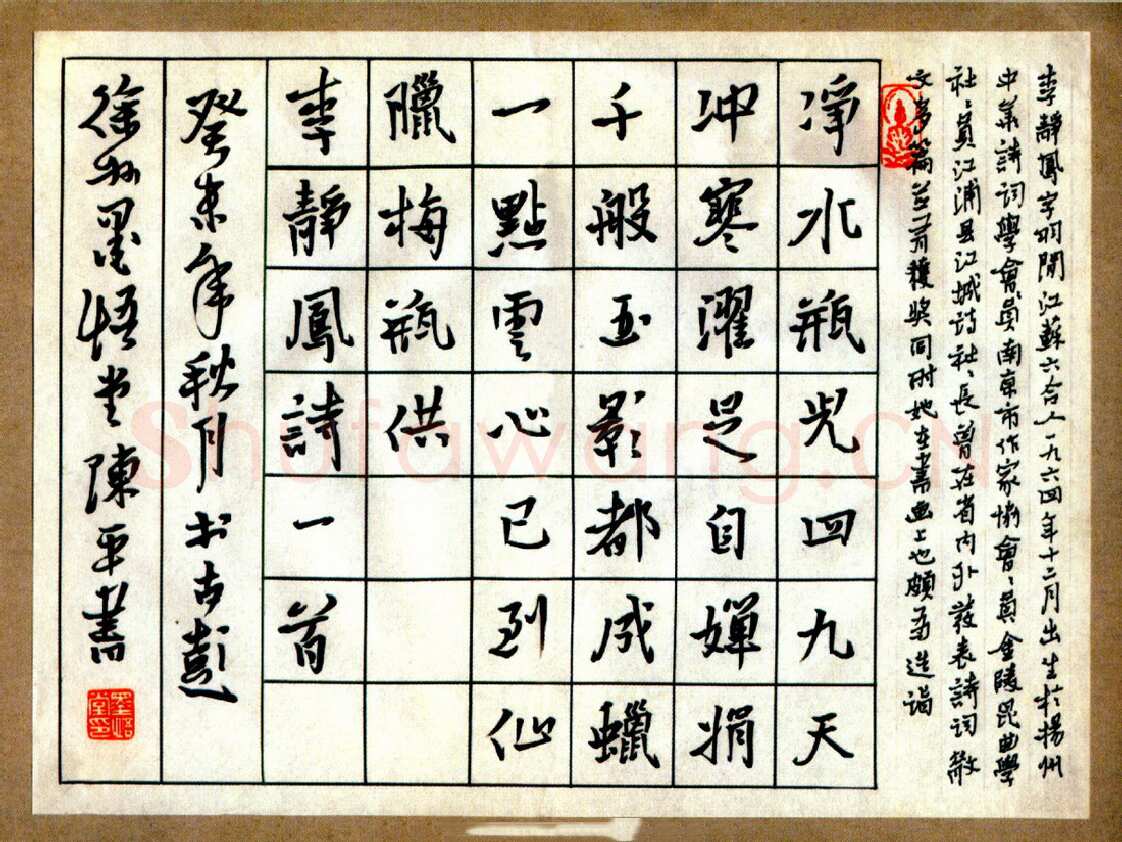 李靜鳳字羽閒江蘇六合人一九六四年十二月出生於揚州
中華詩詞學會會員南京市作家協會會員金陵昆曲學
社社員江浦县江城詩社社長曾在省内外發表詩詞散
文多篇並曾獲奖同时她在書画上也頗有造詣
淨水瓶光四九天
冲寒濯足自嬋娟
千般玉影都成蠟
一點雲心已到仙
臘梅瓶供
李靜鳳詩一首
癸未年秋月书古彭
徐州墨悟堂陳平書
墨悟堂印
Shufawang.CN